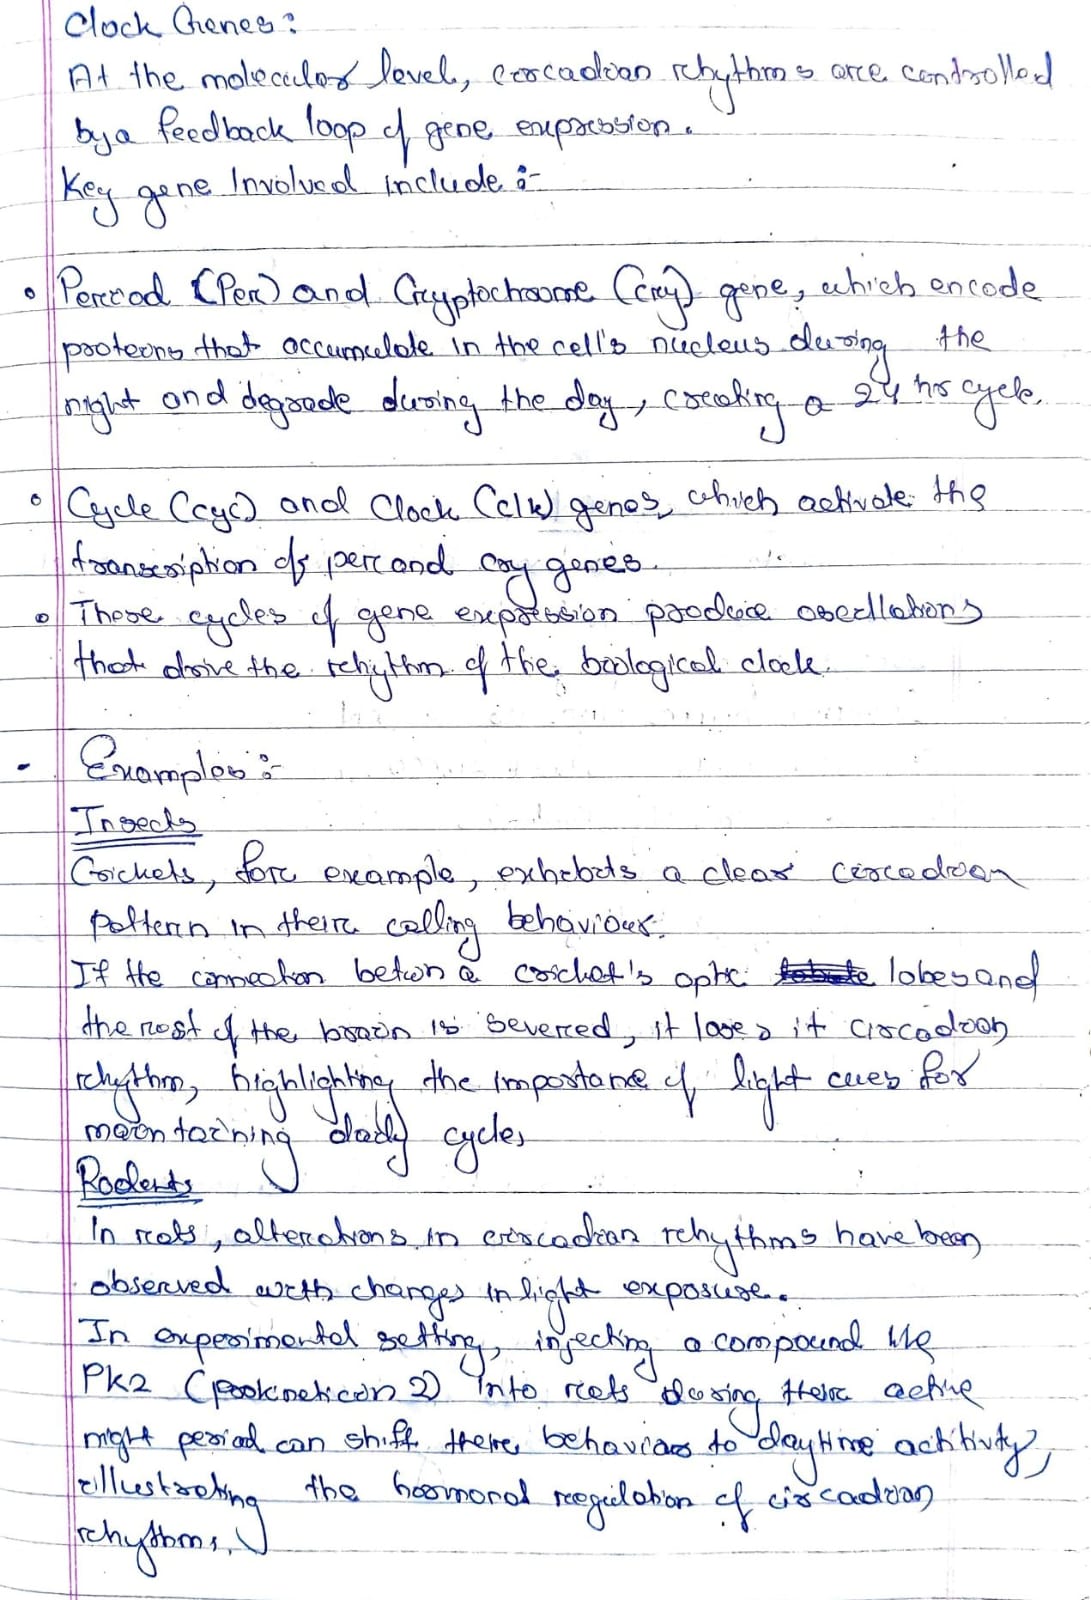 Clock Genes:
At the molecular level, circadian rhythms are controlled
by a feedback loop of gene expression.
Key gene Involved include :-
• Period (Per) and Cryptochrome (cry) gene, which encode
proteins that accumulate in the cell's nucleus during the
night and degrade during the day, creating a 24 hrs cycle.
• Cycle (cyc) and Clock (clk) genes, which activate the
transcription of per and cry genes.
• These cycles of gene expression produce oscillations
that drive the rhythm of the biological clock.
- Examples :-
Insects
Crickets, for example, exhibits a clear circadian
pattern in their calling behaviour.
If the connection betwn a cricket's optic lobes and
the rest of the brain is severed, it loses it circadian
rhythm, highlighting the importance of light cues for
maintaining daily cycles
Rodents
In rats, alterations in circadian rhythms have been
observed with changes in light exposure.
In experimental setting, injecting a compound like
PK2 (prokineticin 2) into rats during their active
night period can shift there behaviors to daytime actitivity,
illustrating the hormonal regulation of circadian
rhythms.